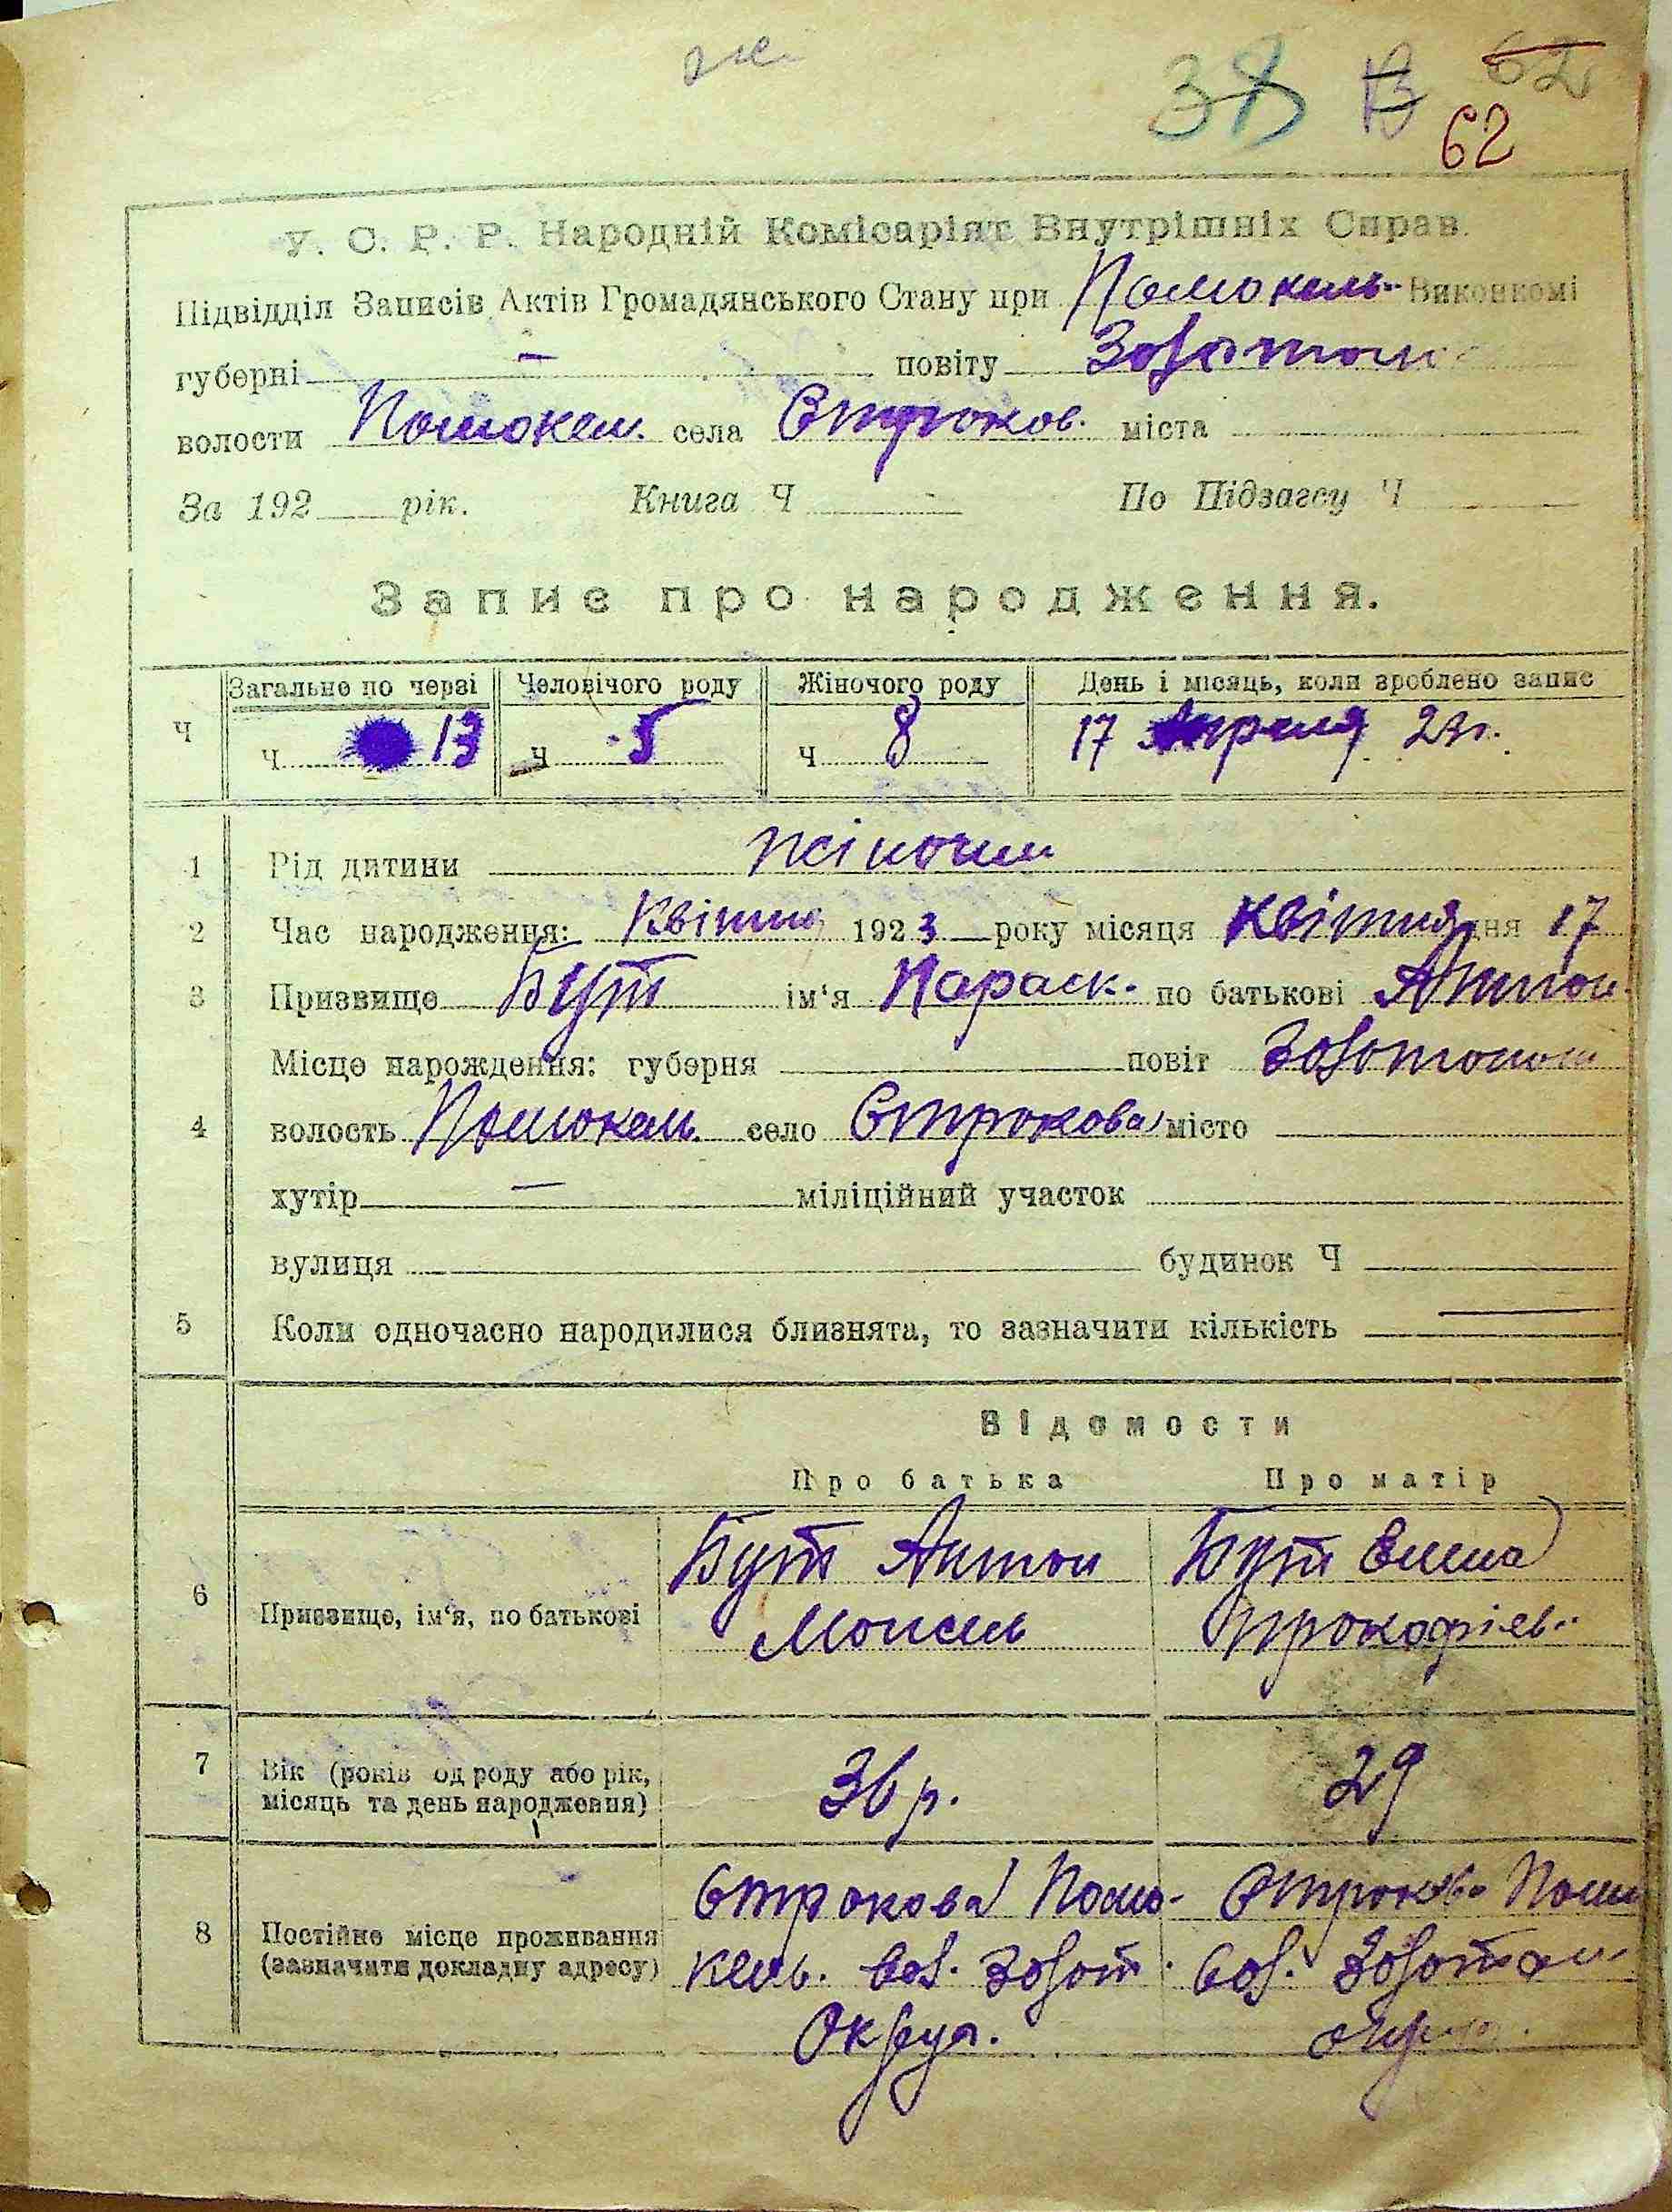 38 13 62
62
У. С. Р. Р. Народній Комісаріят Внутрішніх Справ.
Підвідділ Записів Актів Громадянського Стану при Помокель- Виконкомі
губерні — повіту Золотон
волости Помокел. села Строков. міста
За 192 рік. Книга Ч По Підзагсу Ч
Запис про народження.
Загальне по черзі Человічого роду Жіночого роду День і місяць, коли зроблено запис
Ч Ч 13 Ч 5 Ч 8 17 Апреля 23 г.
1 Рід дитини жіночий
2 Час народження: Квітня 1923 року місяця Квітня дня 17
3 Призвище Бут ім'я Параск. по батькові Антон.
Місце нарождення: губерня повіт Золотонош
4 волость Помокель село Строкова місто
хутір — міліційний участок
вулиця будинок Ч
5 Коли одночасно народилися близнята, то зазначити кількість —
Відомости
Про батька Про матір
Бут Антон Бут Елена
6 Призвище, ім'я, по батькові Моисеев Прокофіев.
7 Вік (років од роду або рік, 36 р. 29
місяць та день народження)
Строкова Помо- Строкова Помо
8 Постійне місце проживання
(зазначити докладну адресу) кель. вол. Золот. вол. Золотон
Округа. округа.